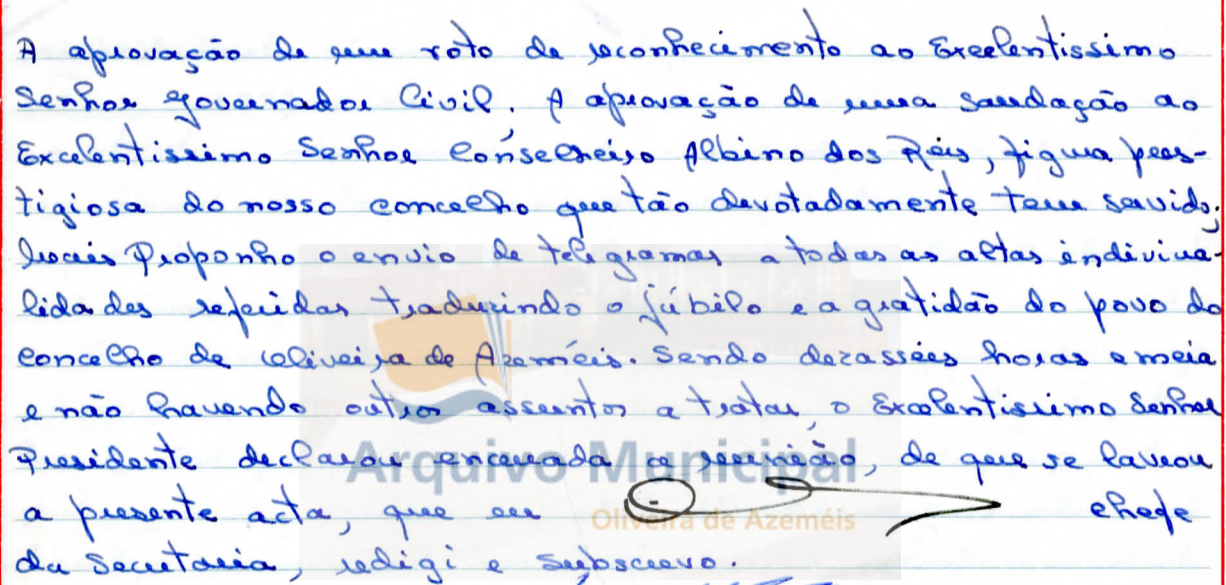 A aprovação de um voto de reconhecimento ao Excelentissimo
Senhor Governador Civil. A aprovação de uma saudação ao
Excelentissimo Senhor Conselheiro Albino dos Reis, figura pres-
tigiosa do nosso concelho que tão devotadamente tem servido;
mais Proponho o envio de telegramas a todas as altas indivi­dua-
lidades referidas traduzindo o júbilo e a gratidão do povo do
concelho de Oliveira de Azeméis. Sendo dezasseis horas e meia
e não havendo outros assuntos a tratar, o Excelentissimo Senhor
Presidente declarou encerrada a reunião, de que se lavrou
a presente acta, que eu chefe
da Secretaria, redigi e subscrevo.
Arquivo Municipal
Oliveira de Azeméis